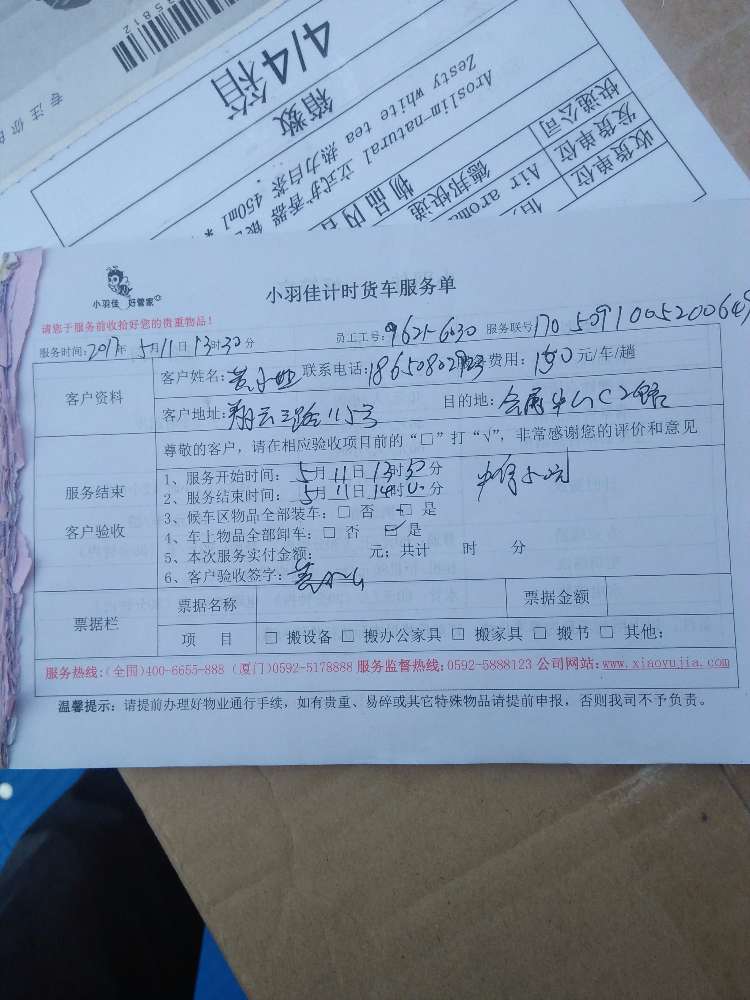 35812
专注你的
4/4箱
箱数
Aroslim-natural 立式扩香器
Zesty white tea 热力白茶 450ml *
物品内
德邦快递
Air aroma
快递公司
发货单位
收货单位
小羽佳 好管家
小羽佳计时货车服务单
请您于服务前收拾好您的贵重物品!
服务时间:2017年5月11日13时30分 员工工号:9621-6030 服务联号170509100520064
客户资料
客户姓名: 联系电话: 费用:150元/车/趟
客户地址:翔云三路115号 目的地:
尊敬的客户,请在相应验收项目前的“□”打“√”,非常感谢您的评价和意见
服务结束
客户验收
1、服务开始时间:5月11日13时30分
2、服务结束时间:5月11日14时 分
3、候车区物品全部装车:□ 否 □ 是
4、车上物品全部卸车:□ 否 ☑ 是
5、本次服务实付金额: 元;共计 时 分
6、客户验收签字:
票据栏
票据名称 票据金额
项 目 □ 搬设备 □ 搬办公家具 □ 搬家具 □ 搬书 □ 其他:
服务热线:(全国)400-6655-888 (厦门)0592-5178888 服务监督热线:0592-5888123 公司网站:www.xiaoyujia.com
温馨提示:请提前办理好物业通行手续,如有贵重、易碎或其它特殊物品请提前申报,否则我司不予负责。